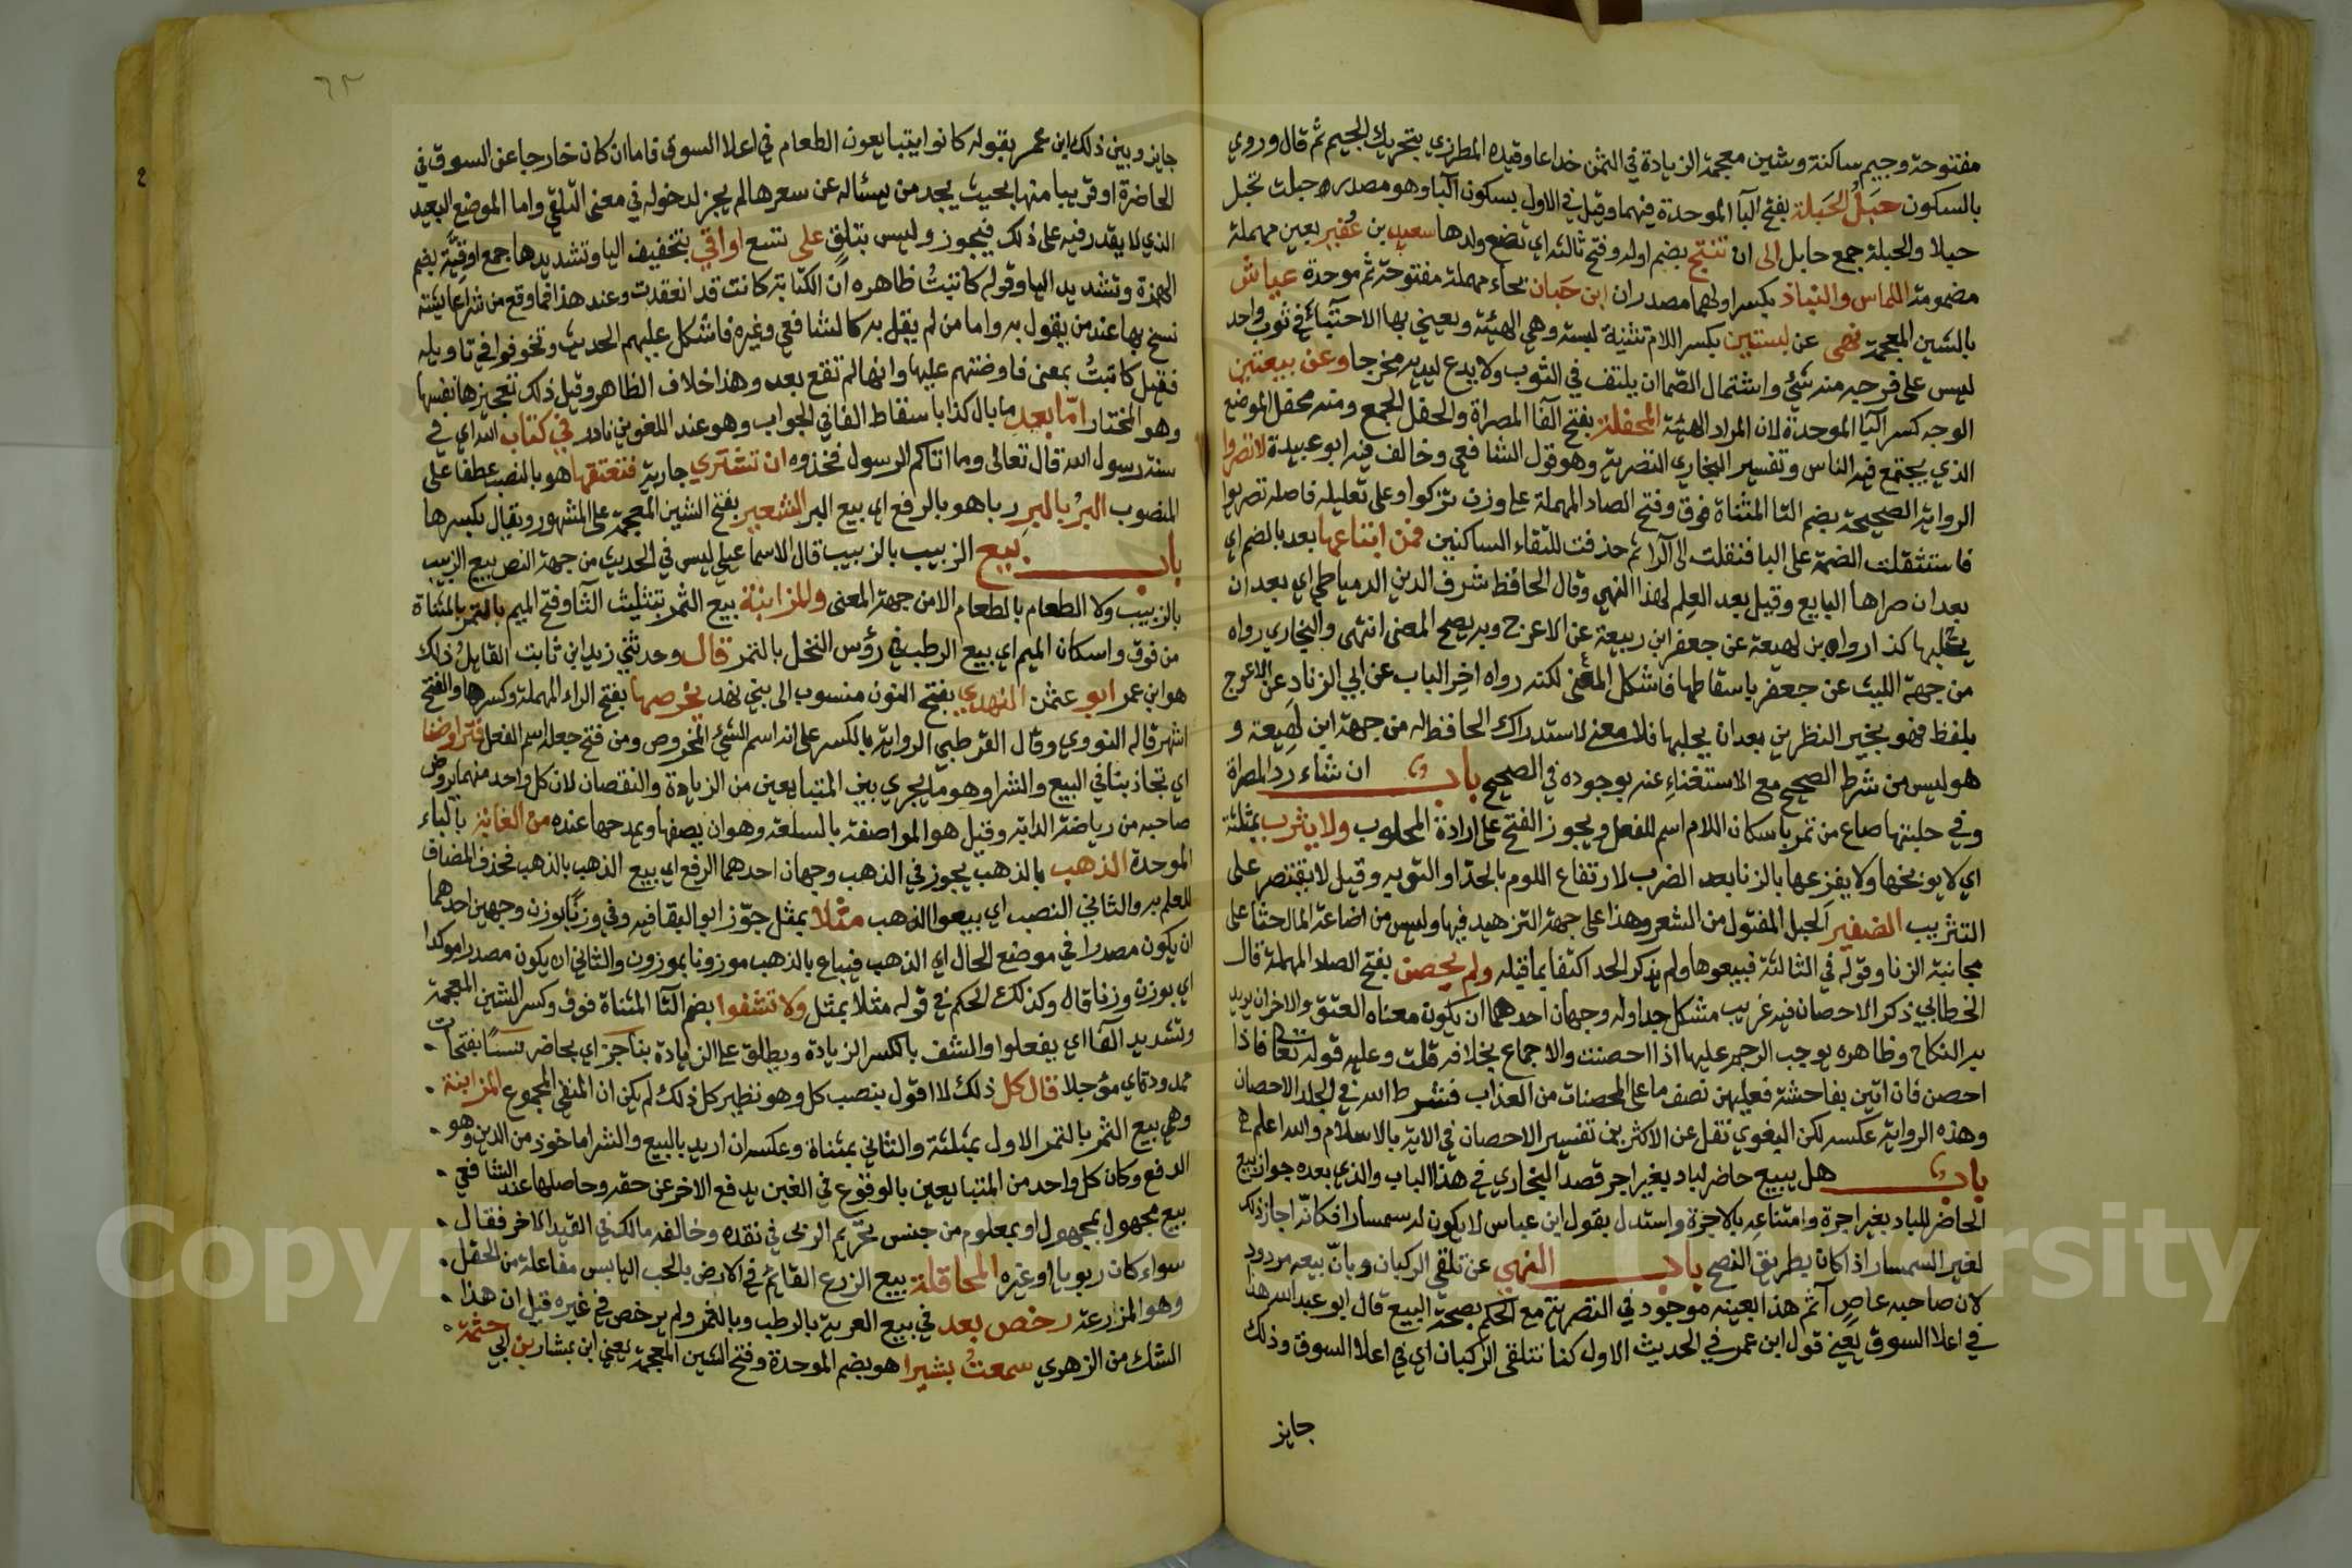 مفتوحة وجيم ساكنة وشين معجمة الزيادة في الثمن خداعا وقيده المطرزي بتحريك الجيم ثم قال وروي
بالسكون حبل الحبلة بفتح البآ الموحدة فيهما وقيل في الاول بسكون البآ وهو مصدر حبلت تحبل
حبلا والحبلة جمع حابل الى ان تنتج بضم اوله وفتح ثالثه اي تضع ولدها سعيد بن عُفير بعين مهملة
مضمومة اللماس والنباذ بكسر اولهما مصدران ابن حَبان بحاء مهملة مفتوحة ثم موحدة عياش
بالشين المعجمة نهى عن لبستين بكسر اللام تثنية لبسة وهي الهيئة ويعني بها الاحتبآئ في ثوب واحد
ليس على فرجه منه شئ واشتمال الصما ان يلتف في الثوب ولا يدع ليديه مخرجا وعن بيعتين
الوجه كسر البآ الموحدة لان المراد الهيئة المحفلة بفتح الفآ المصراة والحفل الجمع ومنه محفل الموضع
الذي يجتمع فيه الناس وتفسير البخاري التصرية وهو قول الشافعي وخالف فيه ابو عبيدة لا تصروا
الرواية الصحيحة بضم التا المثناة فوق وفتح الصاد المهملة على وزن تزكوا وعلى تعليله فاصله تصريوا
فاستثقلت الضمة على اليا فنقلت الى الرآ ثم حذفت للتقاء الساكنين فمن ابتاعها بعد بالضم اي
بعد ان صراها البايع وقيل بعد العلم لهذا النهي وقال الحافظ شرف الدين الدمياطي اي بعد ان
يحلبها كذا رواه بن لهيعة عن جعفر ابن ربيعة عن الاعرج وبه يصح المعنى انتهى والبخاري رواه
من جهة الليث عن جعفر باسقاطها فاشكل المعنى لكنه رواه اخر الباب عن ابي الزناد عن الاعرج
بلفظ فهو بخير النظرين بعد ان يحلبها فلا معنى لاستدراك الحافظ له من جهة ابن لهيعة و
هو ليس من شرط الصحيح مع الاستغناء عنه بوجوده في الصحيح باب ان شاء رد المصراة
وفي حلبتها صاع من تمر باسكان اللام اسم للفعل ويجوز الفتح على ارادة المحلوب ولا يثرب بمثلثة
اي لا يوبخها ولا يقرعها بالزنا بعد الضرب لارتفاع اللوم بالحد او التوبه وقيل لا يقتصر على
التثريب الضفير الحبل المفتول من الشعر وهذا على جهة التزهيد فيها وليس من اضاعة المال حثا على
مجانبة الزنا وقوله في الثالثة فبيعوها ولم يذكر الحد اكتفا بما قبله ولم يحصن بفتح الصاد المهملة قال
الخطابي ذكر الاحصان فيه غريب مشكل جدا وله وجهان احدهما ان يكون معناه العتق والاخر ان يريد
به النكاح وظاهره يوجب الرجم عليها اذا احصنت والاجماع بخلافه قلت وعليه قوله تعالى فاذا
احصن فان اتين بفاحشة فعليهن نصف ما على المحصنات من العذاب فشرط الله في الجلد الاحصان
وهذه الرواية عكسه لكن البغوي نقل عن الاكثرين تفسير الاحصان في الاية بالاسلام والله اعلم
باب هل يبيع حاضر لباد بغير اجر قصد البخاري في هذا الباب والذي بعده جواز بيع
الحاضر للباد بغير اجرة وامتناعه بالاجرة واستدل بقول ابن عباس لا يكون له سمسارا فكانه اجاز ذلك
لغير السمسار اذا كان بطريق النصح باب النهي عن تلقي الركبان وبان بيعه مردود
لان صاحبه عاص آثم هذا بعينه موجود في التصرية مع الحكم بصحة البيع قال ابو عبد الله هذا
في اعلا السوق يعني قول ابن عمر في الحديث الاول كنا نتلقى الركبان اي في اعلا السوق وذلك
جايز
٦٢
جايز وبين ذلك ابن عمر بقوله كانوا يتبايعون الطعام في اعلا السوق فاما ان كان خارجا عن السوق في
الحاضرة او قريبا منها بحيث يجد من يسئاله عن سعرها لم يجز لدخوله في معنى التلقي واما الموضع البعيد
الذي لا يقدر فيه على ذلك فيجوز وليس بتلق على تسع اواقي بتخفيف اليا وتشديدها جمع اوقية بضم
الهمزة وتشديد اليا وقوله كاتبتُ ظاهره ان الكتابة كانت قد انعقدت وعند هذا فما وقع من شرا عايشة
نسخ بها عند من يقول به واما من لم يقل به كالشافعي وغيره فاشكل عليهم الحديث وتخوفوا في تاويله
فقيل كاتبتُ بمعنى فاوضتهم عليها وانها لم تقع بعد وهذا خلاف الظاهر وقيل ذلك تعجيزها نفسها
وهو المختار امّا بعد ما بال كذا باسقاط الفا في الجواب وهو عند اللغويين نادر في كتاب الله اي في
سنة رسول الله قال تعالى وما اتاكم الرسول فخذوه ان تشتري جارية فتعتقها هو بالنصب عطفا على
المنصوب البُر بالبر ربا هو بالرفع اي بيع البر الشعير بفتح الشين المعجمة على المشهور ويقال بكسرها
باب بيع الزبيب بالزبيب قال الاسماعيلي ليس في الحديث من جهة النص بيع الزبيب
بالزبيب ولا الطعام بالطعام الا من جهة المعنى والمزابنة بيع الثمر بتثليث الثآ وفتح الميم بالتمر بالمثناة
من فوق واسكان الميم اي بيع الرطب في رؤس النخل بالتمر قال وحدثني زيد ابن ثابت القايلُ ذلك
هو ابن عمر ابو عثمن النهدي بفتح النون منسوب الى بني نهد بخرصها بفتح الراء المهملة وكسرها والفتح
اشهر قاله النووي وقال القرطبي الرواية بالكسر على انه اسم الشئ المخروص ومن فتح جعله اسم الفعل فتراوضنا
اي تجاذبنا في البيع والشرا وهو ما يجري بين المتبايعين من الزيادة والنقصان لان كل واحد منهما يروض
صاحبه من رياضة الدابة وقيل هو المواصفة بالسلعة وهو ان يصفها ويمدحها عنده من الغابة بالباء
الموحدة الذهب بالذهب يجوز في الذهب وجهان احدهما الرفع اي بيع الذهب بالذهب فحذف المضاف
للعلم به والثاني النصب اي بيعوا الذهب مثلا بمثل جوّز ابو البقا فيه وفي وزنًا بوزن وجهين احدهما
ان يكون مصدرا في موضع الحال اي الذهب فيباع بالذهب موزونا بموزون والثاني ان يكون مصدرا موكدا
اي بوزن وزنا قال وكذلك الحكم في قوله مثلا بمثل ولا تشفوا بضم التآ المثناة فوق وكسر الشين المعجمة
وتشديد الفآ اي يفعلوا والشف بالكسر الزيادة ويطلق على الزيادة بناجز اي بحاضر نسًا بفتحات
ممدود اي مؤجلا قال كل ذلك لا اقول بنصب كل وهو نظير كل ذلك لم يكن ان المنفي المجموع المزابنة
وهي بيع الثمر بالتمر الاول بمثلثة والثاني بمثناة وعكسه ان اريد بالبيع والشرا ماخوذ من الدين وهو
الدفع وكان كل واحد من المتبايعين بالوقوع في الغبن يدفع الاخر عن حقه وحاصلها عند الشافعي
بيع مجهول بمجهول او بمعلوم من جنس تحريم الربى في نقده وخالفه مالك في القيد الاخر فقال
سواء كان ربويا او غيره المحاقلة بيع الزرع القايم في الارض بالحب اليابس مفاعلة من الحقل
وهو المزارعة رخص بعد في بيع العرية بالرطب وبالتمر ولم يرخص في غيره قيل ان هذا
الشك من الزهري سمعتُ بشيرا هو بضم الموحدة وفتح الشين المعجمة يعني ابن بشار بن ابي حثمة
Copyright © King Saud University